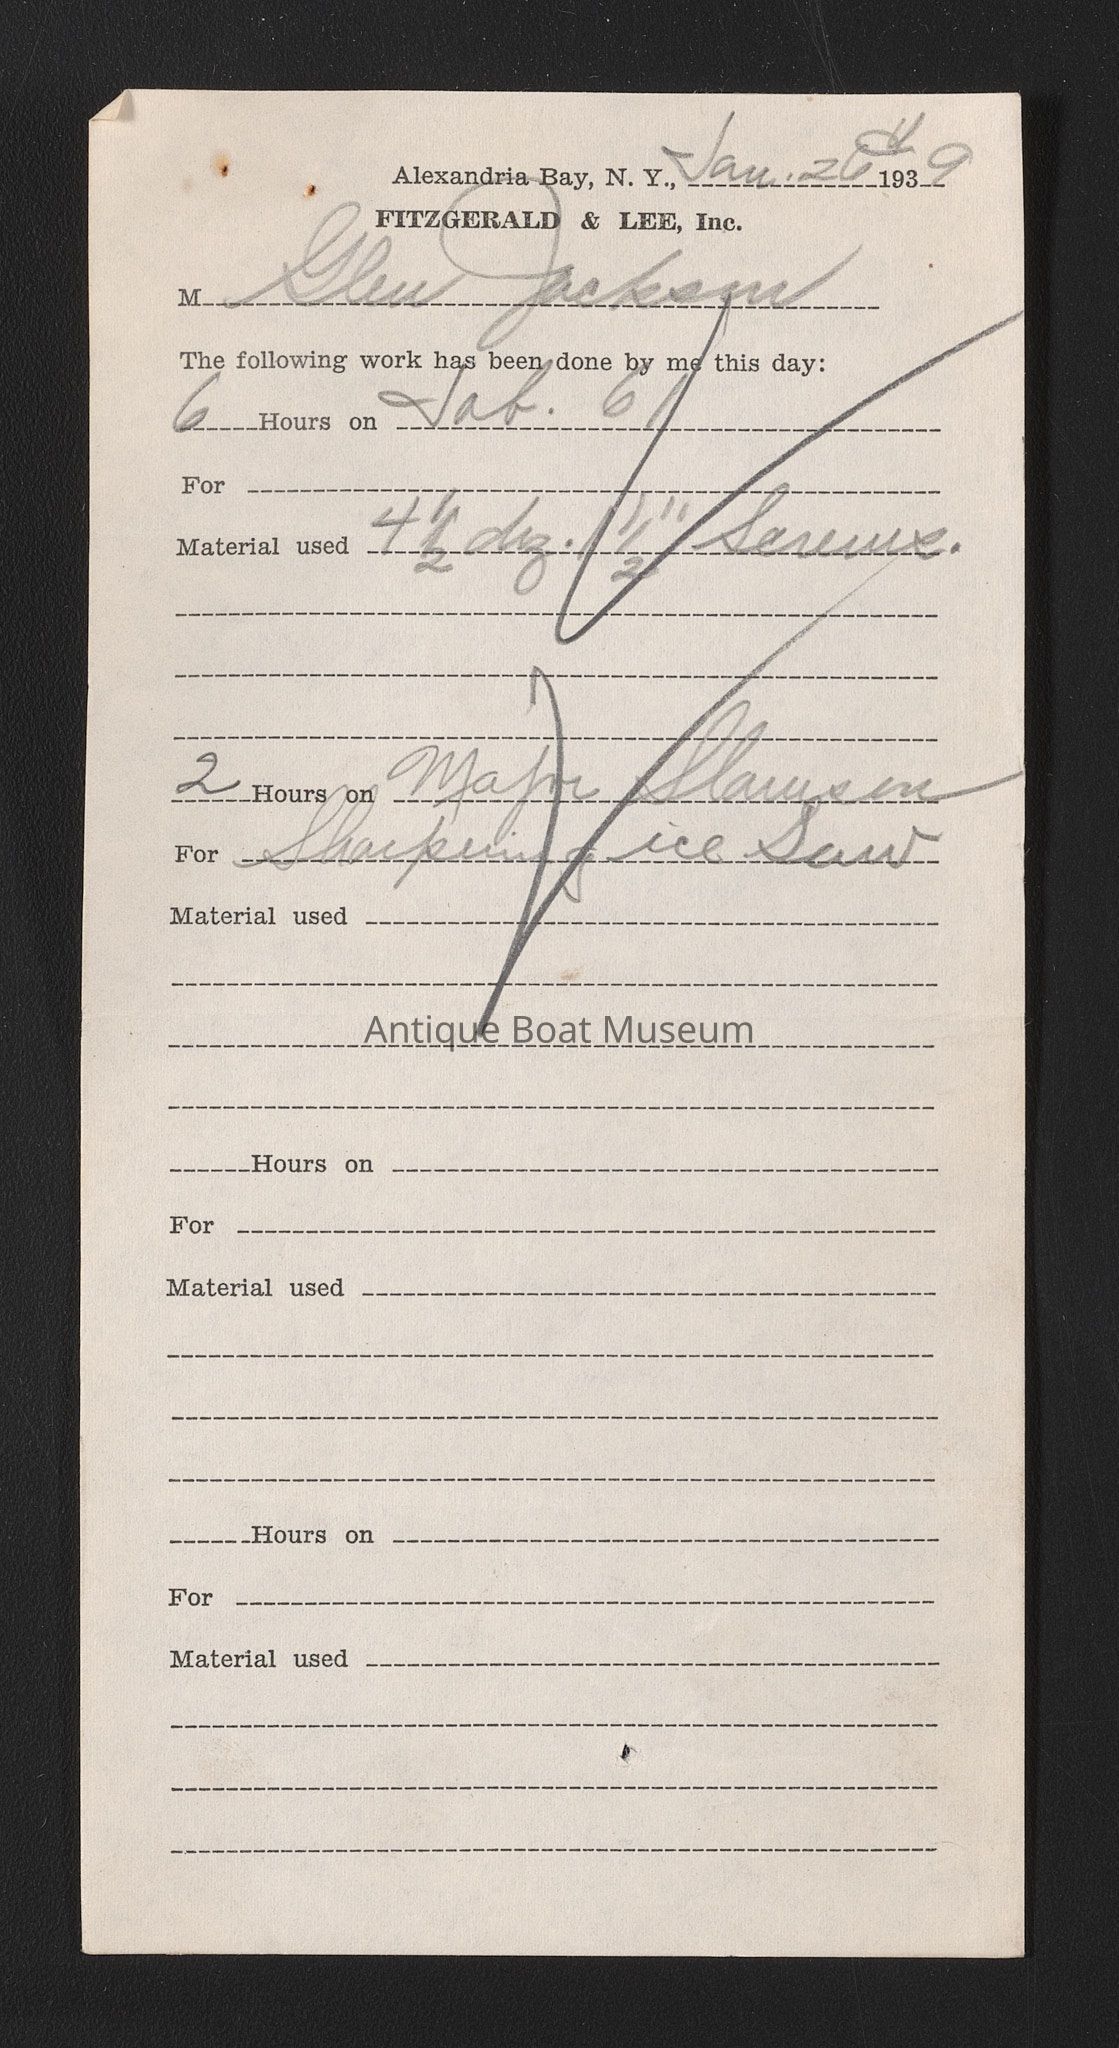 Alexandria Bay, N. Y., Jan. 26th 1939
FITZGERALD & LEE, Inc.
M Glen Jackson
The following work has been done by me this day:
6 Hours on Job. 61
For
Material used 4 1/2 doz. 1 1/2" Screws.
2 Hours on Major
For Sharpening ice Saw
Material used
Antique Boat Museum
Hours on
For
Material used
Hours on
For
Material used